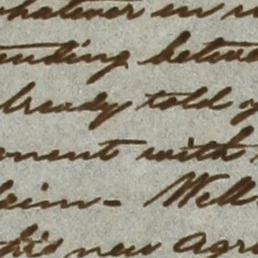 whatever in
ending betwe
already told y
onent with
laim - Well
this new agre